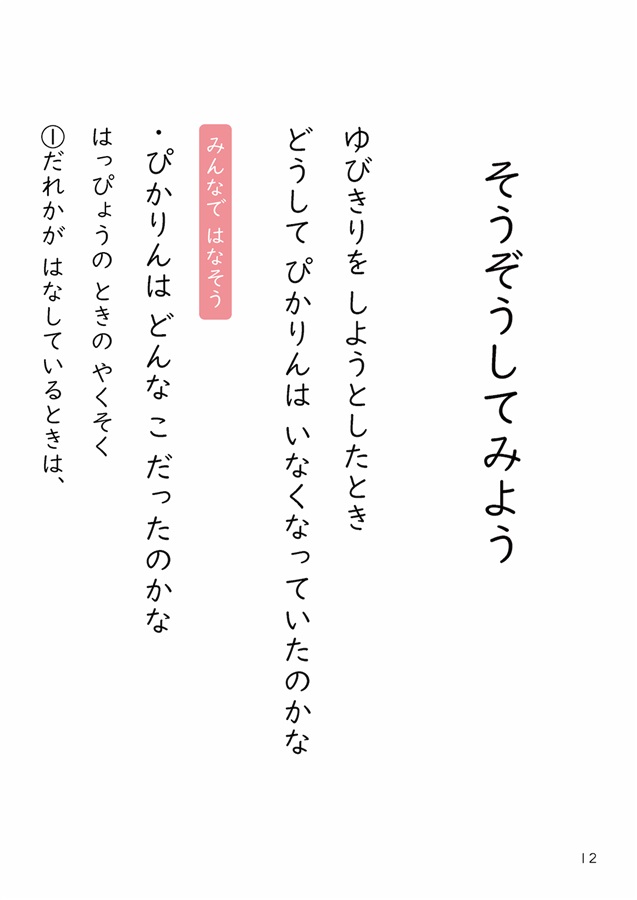 そうぞうしてみよう
ゆびきりを しようとしたとき
どうして ぴかりんは いなくなっていたのかな
みんなで はなそう
・ぴかりんは どんな こ だったのかな
はっぴょうの ときの やくそく
①だれかが はなしているときは、
12